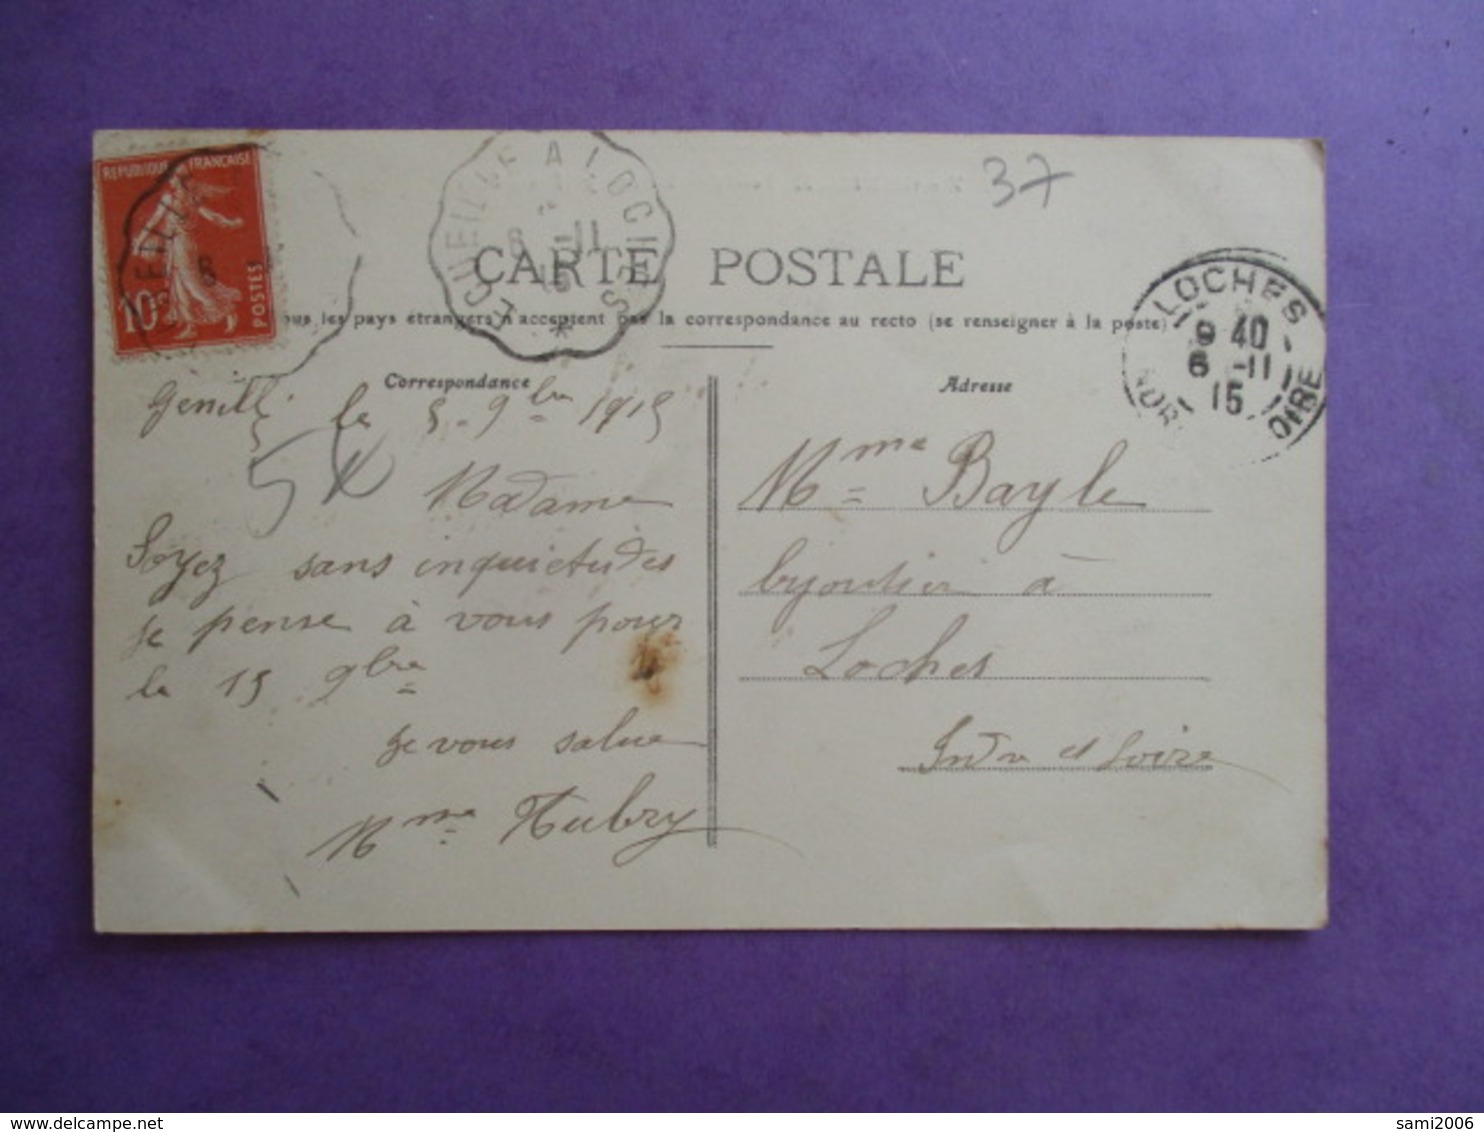 REPUBLIQUE FRANÇAISE
10c
POSTES
ECUEILLE A LOCHES
6 -11
15
37
LOCHES
9 40
6 -11
15
INDRE ET LOIRE
CARTE POSTALE
ous les pays étrangers n'acceptent pas la correspondance au recto (se renseigner à la poste)
Correspondance
Adresse
Genillé le 5 - 9bre 1915
Madame
Soyez sans inquietudes
je pense à vous pour
le 15 9bre
je vous salue
Mme Aubry
Mme Bayle
bijoutier à
Loches
Indre et Loire
sami2006